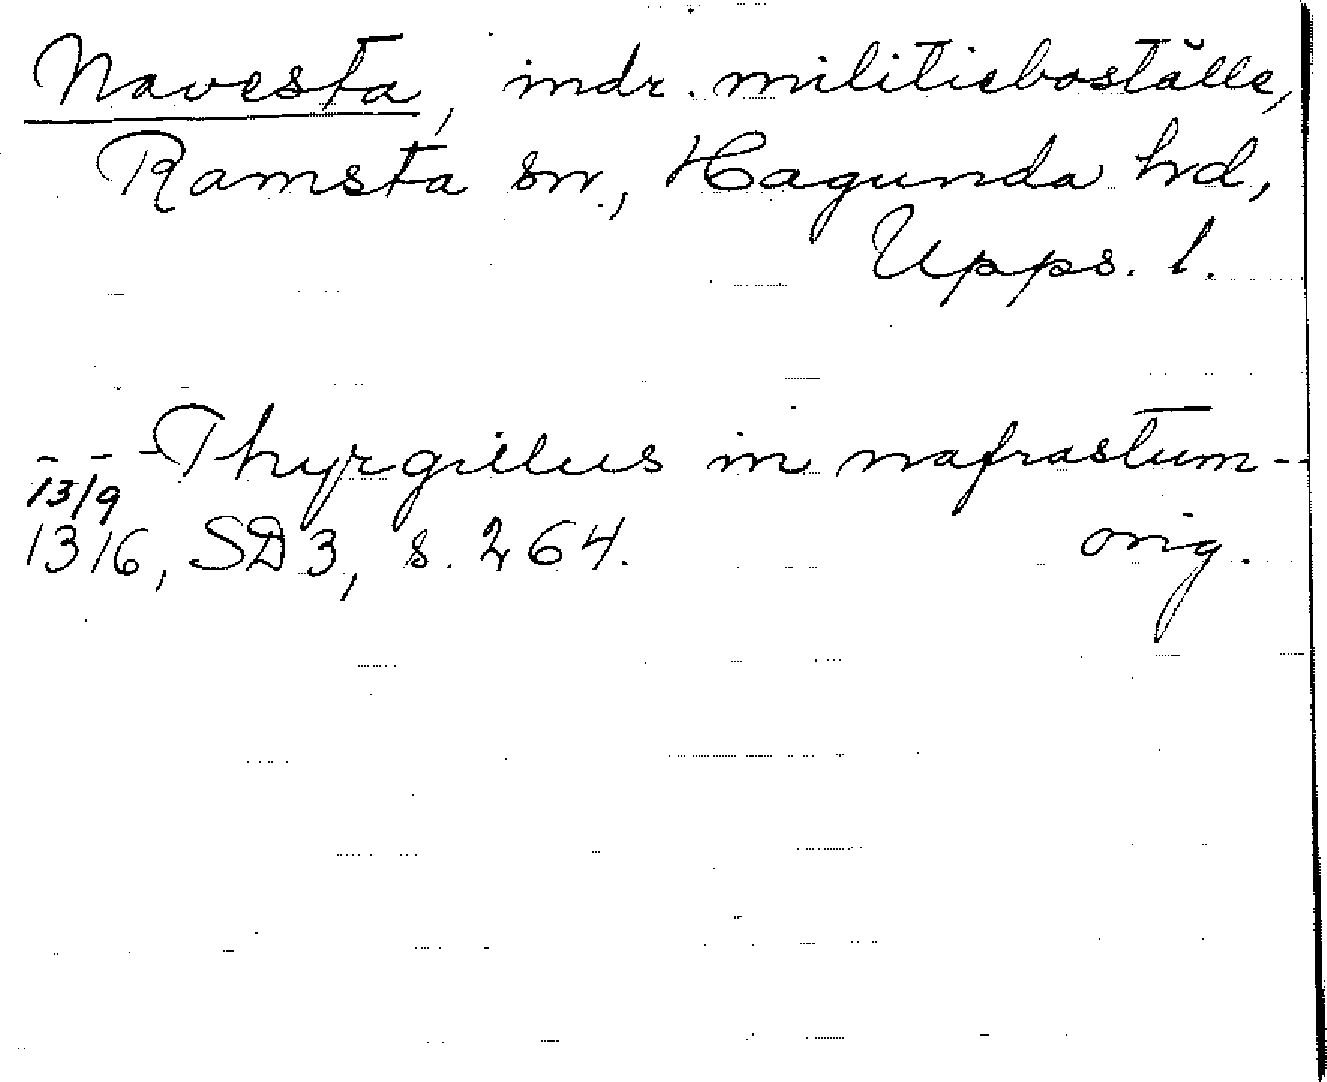 Navesta, indr. militieboställe,
Ramsta sn., Hagunda hd,
Upps. l.
--- Thyrgillus in nafrastum --
13/9
1316, SD 3, s. 264. orig.